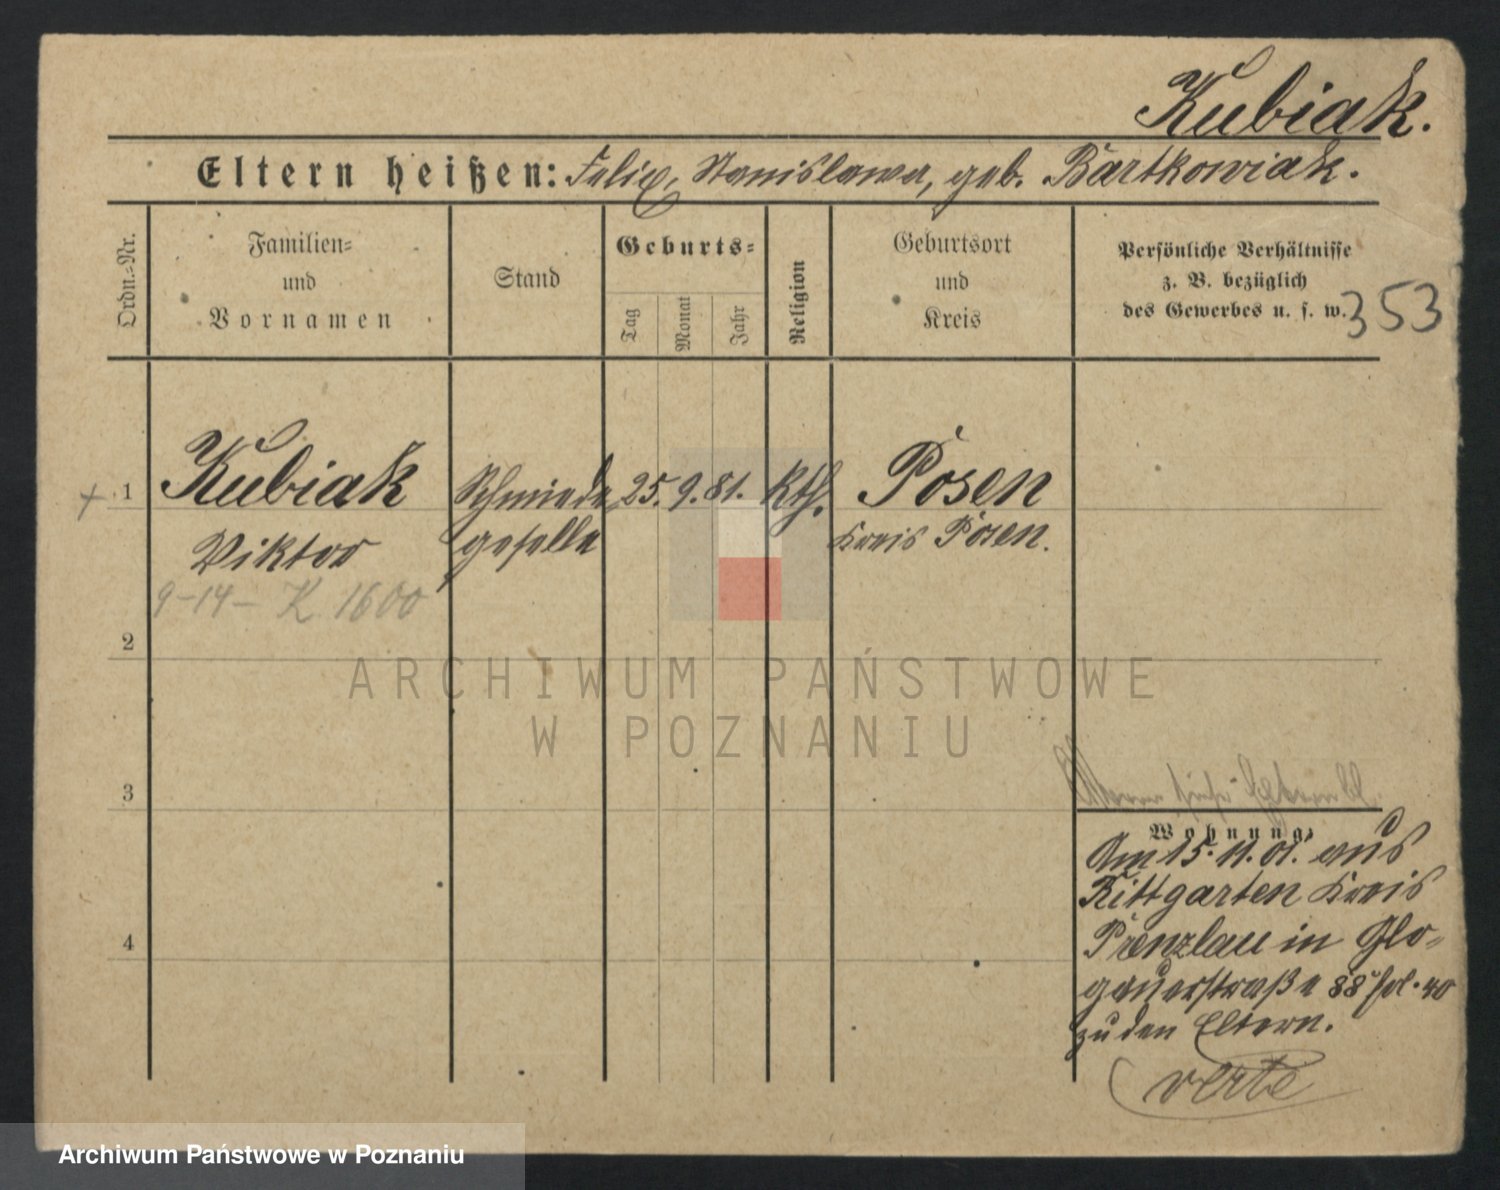 Kubiak.
Eltern heißen: Felix, Stanislawa, geb. Bartkowiak.
Ordn.=Nr.
Familien=
und
Vornamen
Stand
Geburts=
Tag
Monat
Jahr
Religion
Geburtsort
und
Kreis
Persönliche Verhältnisse
z. B. bezüglich
des Gewerbes u. s. w.
353
+ 1
Kubiak
Viktor
9-14- K 1600
Schmiede
geselle
25. 9. 81.
Kth.
Posen
Kreis Posen.
2
ARCHIWUM PAŃSTWOWE
W POZNANIU
3
4
Wohnung
Am 15. 11. 01. aus
Rittgarten Kreis
Prenzlau in Glo-
gauerstraße 88 40
zu den Eltern.
verte
Archiwum Państwowe w Poznaniu